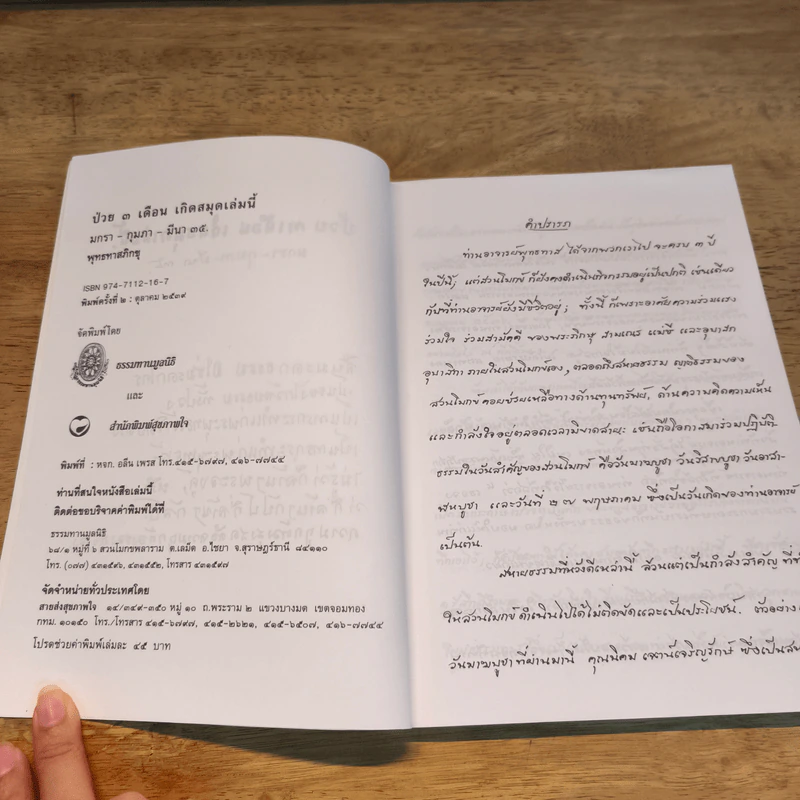 ป่วย ๓ เดือน เกิดสมุดเล่มนี้
มกรา - กุมภา - มีนา ๓๕.
พุทธทาสภิกขุ
ISBN 974-7112-16-7
พิมพ์ครั้งที่ ๒ : ตุลาคม ๒๕๓๙
จัดพิมพ์โดย
ธรรมทานมูลนิธิ
และ
สำนักพิมพ์สุขภาพใจ
พิมพ์ที่ : หจก. อลีน เพรส โทร.๔๑๕-๖๗๙๗, ๔๑๖-๗๗๔๔
ท่านที่สนใจหนังสือเล่มนี้
ติดต่อขอบริจาคค่าพิมพ์ได้ที่
ธรรมทานมูลนิธิ
๖๘/๑ หมู่ที่ ๖ สวนโมกขพลาราม ต.เลม็ด อ.ไชยา จ.สุราษฎร์ธานี ๘๔๑๑๐
โทร. (๐๗๗) ๔๓๑๕๙๖, ๔๓๑๕๕๒, โทรสาร ๔๓๑๕๙๗
จัดจำหน่ายทั่วประเทศโดย
สายส่งสุขภาพใจ ๑๔/๓๔๙-๓๕๐ หมู่ ๑๐ ถ.พระราม ๒ แขวงบางมด เขตจอมทอง
กทม. ๑๐๑๕๐ โทร./โทรสาร ๔๑๕-๖๗๙๗, ๔๑๕-๒๖๒๑, ๔๑๕-๖๕๐๗, ๔๑๖-๗๗๔๔
โปรดช่วยค่าพิมพ์เล่มละ ๔๕ บาท
คำปรารภ
ท่านอาจารย์พุทธทาส ได้จากพวกเราไป จะครบ ๓ ปี
ในปีนี้; แต่สวนโมกข์ ก็ยังคงดำเนินกิจกรรมอยู่เป็นปกติ เช่นเดียว
กับที่ท่านอาจารย์ยังมีชีวิตอยู่; ทั้งนี้ ก็เพราะอาศัยความร่วมแรง
ร่วมใจ ร่วมสามัคคี ของพระภิกษุ สามเณร แม่ชี และอุบาสก
อุบาสิกา ภายในสวนโมกข์เอง, ตลอดถึงสหายธรรม ญาติธรรมของ
สวนโมกข์ คอยช่วยเหลือทางด้านทุนทรัพย์, ด้านความคิดความเห็น
และกำลังใจอยู่ตลอดเวลามิขาดสาย: เช่นถือโอกาสมาร่วมปฏิบัติ-
ธรรมในวันสำคัญของสวนโมกข์ คือวันมาฆบูชา วันวิสาขบูชา วันอาสา-
ฬหบูชา และวันที่ ๒๗ พฤษภาคม ซึ่งเป็นวันเกิดของท่านอาจารย์
เป็นต้น.
สหายธรรมที่หวังดีเหล่านี้ ล้วนแต่เป็นกำลังสำคัญ ที่
ให้สวนโมกข์ ดำเนินไปได้ไม่ติดขัดและเป็นประโยชน์. ตัวอย่าง
วันมาฆบูชา ที่ผ่านมานี้ คุณนิคม เจตน์เจริญรักษ์ ซึ่งเป็น